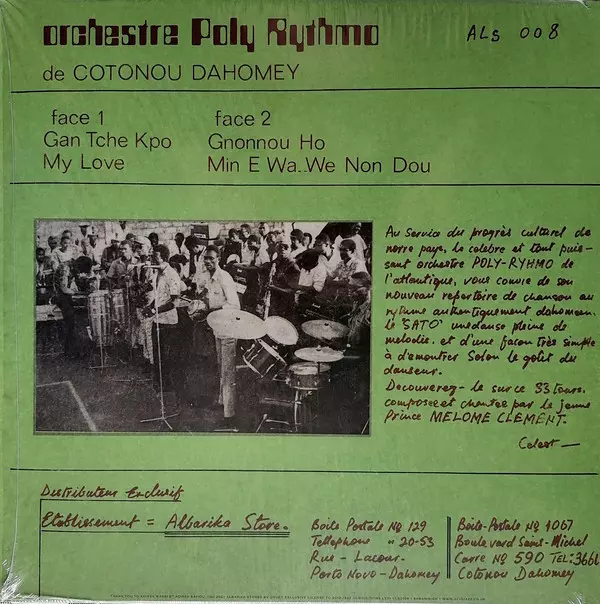 orchestre Poly Rythmo
ALS 008
de COTONOU DAHOMEY
face 1
Gan Tche Kpo
My Love
face 2
Gnonnou Ho
Min E Wa..We Non Dou
Au Service du progrès culturel de
notre pays, le celebre et tout puis-
sant orchestre POLY-RYHMO de
l'atlantique, vous convie de son
nouveau repertoire de chanson au
rythme authentiquement dahoméen.
le "SATO" une danse pleine de
melodie. et d'une façon très simple
à démontrer Selon le goût du
danseur.
Decouverez-le sur ce 33 tours.
composée et chantée par le jeune
Prince MELOME CLEMENT.
Distributeur Exclusif
Etablissement = Albarika Store.
Boite Postale Nº 129
Telephone " 20-53
Rue - Lacour.
Porto Novo - Dahomey
Boite-Postale Nº 1067
Boulevard Saint-Michel
Carre Nº 590 TEL:3661
Cotonou Dahomey